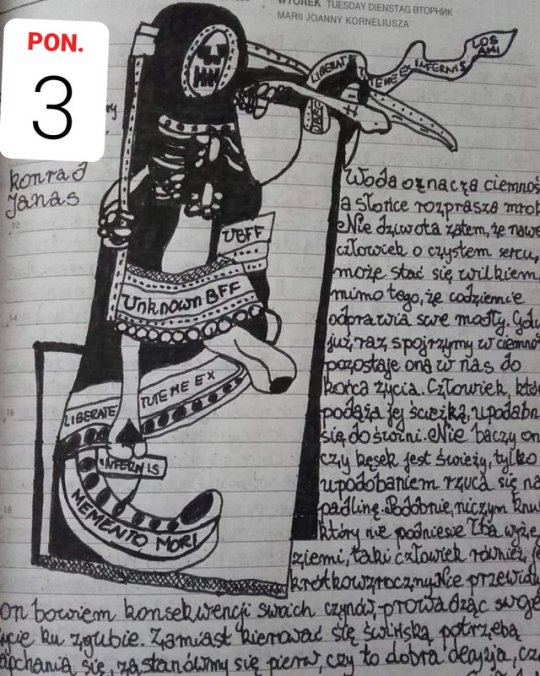 WTOREK TUESDAY DIENSTAG ВТОРНИК
MARII JOANNY KORNELIUSZA
PON.
3
konrad
Janas
LIBERATE
TUTEME EX
INFERNIS
LOS
AMI
12
14
16
18
UBFF
UNKNOWN BFF
LIBERATE
TUTEME EX
INFERNIS
MEMENTO MORI
Woda oznacza ciemnoś
a słońce rozprasza mrok
Nie dziwota zatem, że nawe
człowiek o czystem sercu,
może stać się wilkiem,
mimo tego, że codziennie
odprawia swe modły. Gdy
już raz spojrzymy w ciemno
pozostaje ona w nas do
końca życia. Człowiek, któ
podąża jej ścieżką, upodabn
się do świni. Nie baczy on
czy kęsek jest świeży, tylko
upodobaniem rzuca się na
padlinę. Podobnie, niczym knu
który nie podniesie łba wyże
ziemi, taki człowiek również je
krótkowzroczny. Nie przewidu
on bowiem konsekwencji swoich czynów, prowadząc swoje
ycie ku zgubie. Zamiast kierować się świńską potrzebą
apchania się, zastanówmy się pierw, czy to dobra decyzja, cz